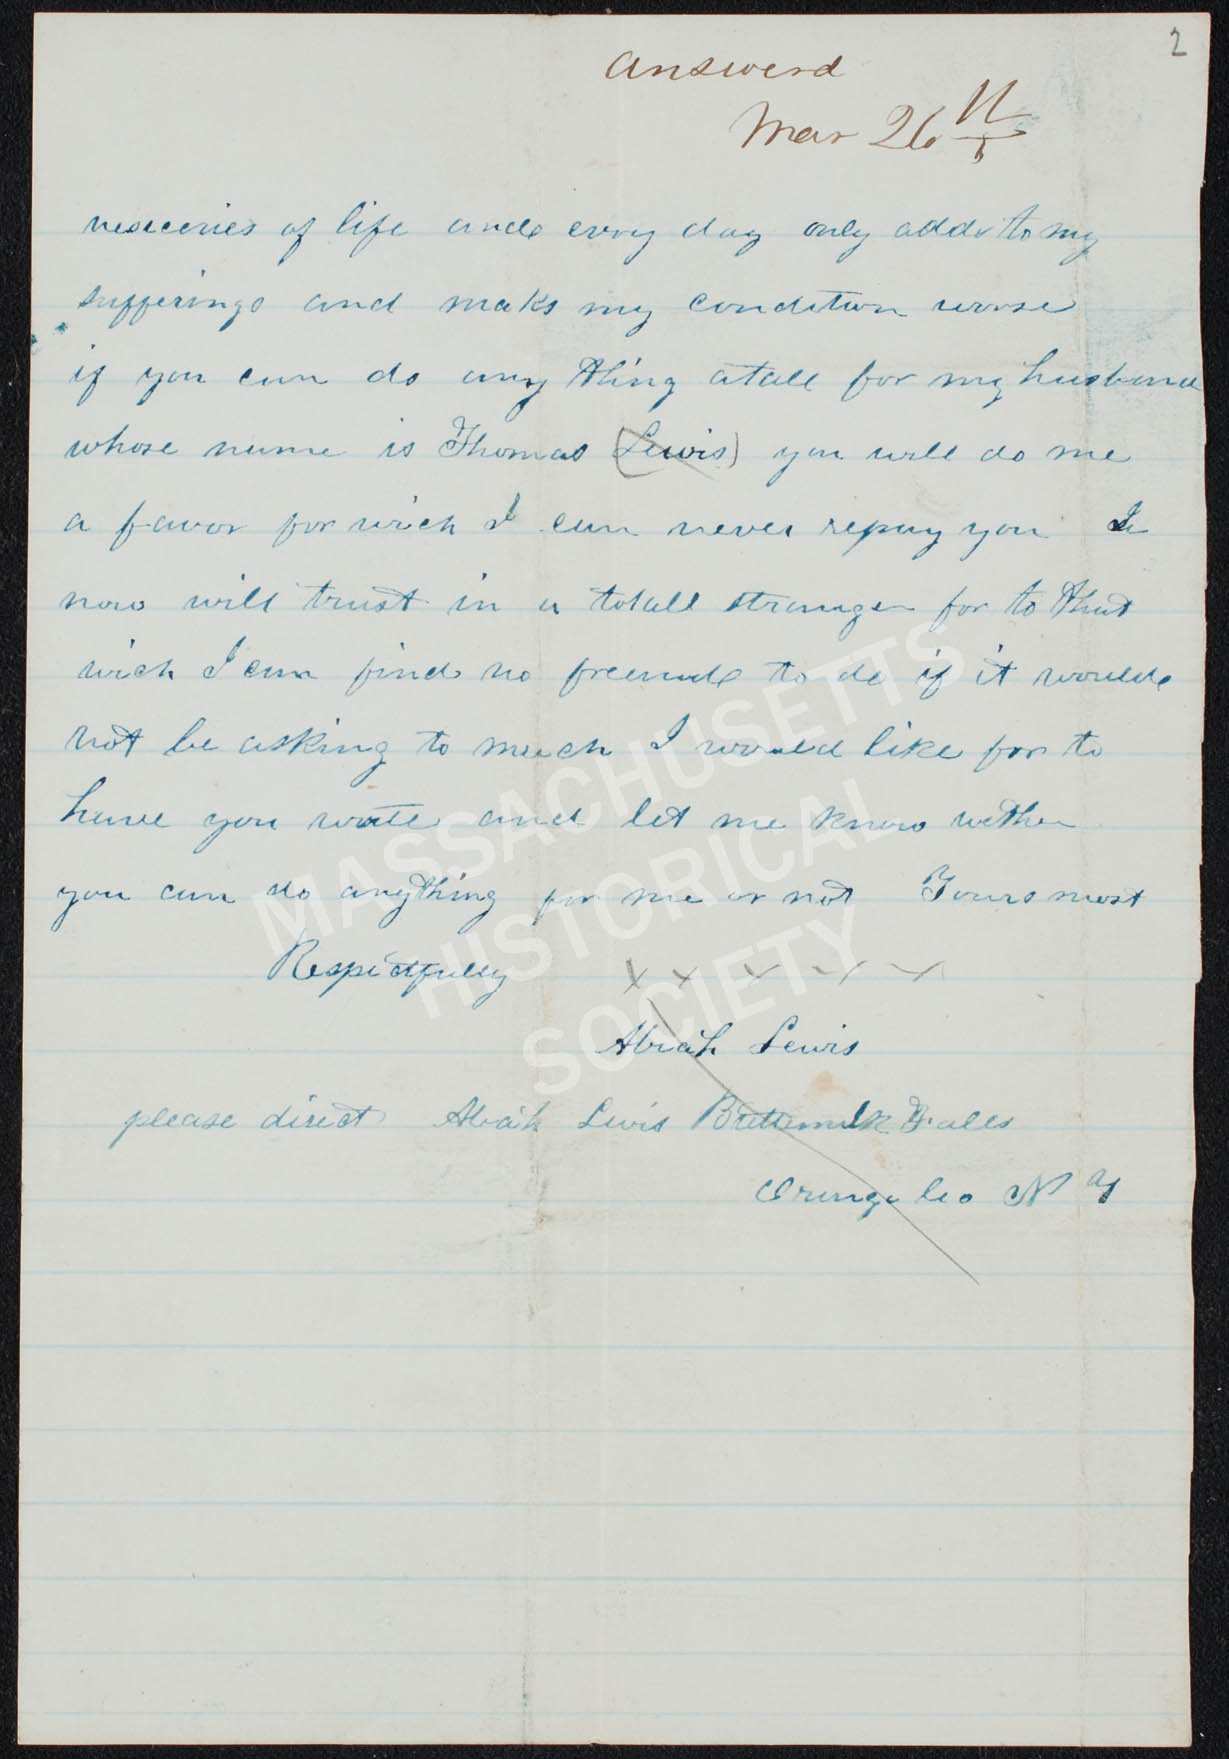 2
answerd
Mar 26
nesceries of life ande evry day only adds to my
sufferings and maks my condition worse
if you can do any thing atall for my husband
whose name is Thomas (Lewis) you will do me
a favor for wich I can never repay you I
now will trust in a totall stranger for to that
wich I can find no freende to do if it woulde
not be asking to much I would like for to
have you wrate and let me know wether
you can do anything for me or not Yours most
Respectfully x x x x x
Abiah Lewis
please direct Abiah Lewis Buttemelk Falls
Orange Co N Y
MASSACHUSETTS
HISTORICAL
SOCIETY